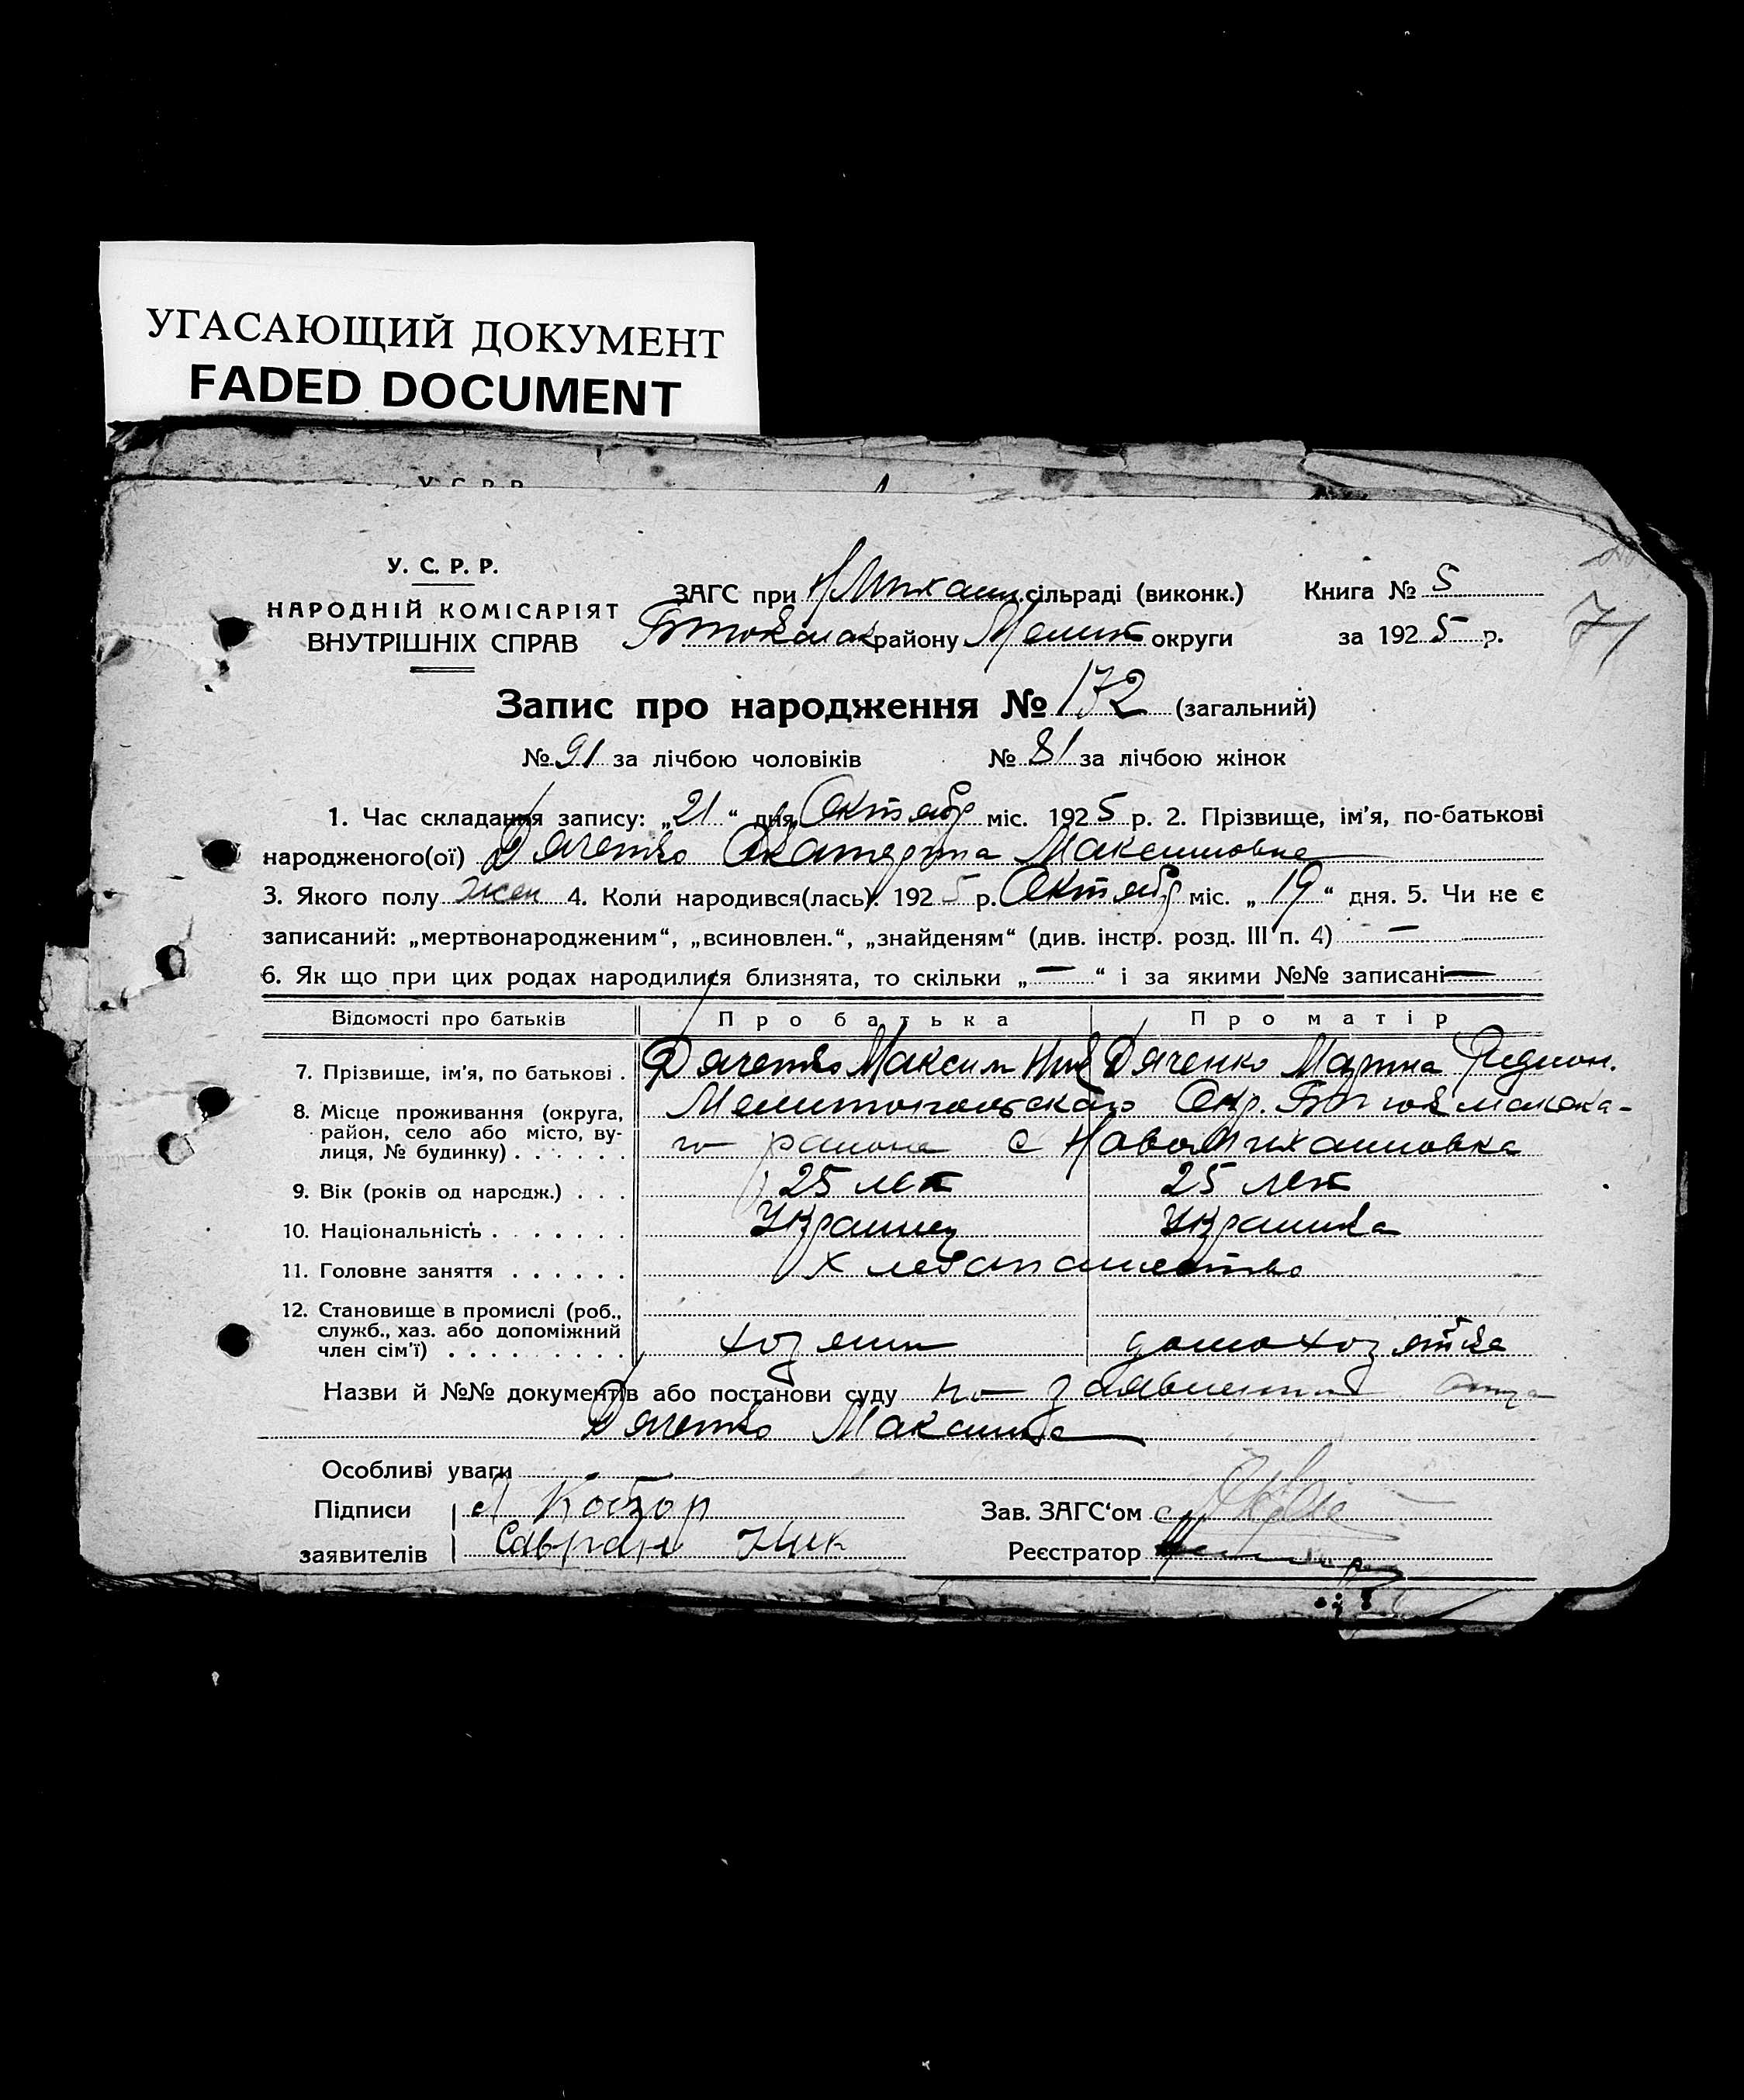 УГАСАЮЩИЙ ДОКУМЕНТ
FADED DOCUMENT
У. С. Р. Р.
У. С. Р. Р.
НАРОДНІЙ КОМІСАРІЯТ
ВНУТРІШНІХ СПРАВ
ЗАГС при Н Михайл. сільраді (виконк.) Книга № 5
Б Токмак району Мелит округи за 1925 р.
71
Запис про народження № 172 (загальний)
№ 91 за лічбою чоловіків № 81 за лічбою жінок
1. Час складання запису: „21“ дня Октябр міс. 1925 р. 2. Прізвище, ім'я, по-батькові
народженого(ої) Дяченко Екатерина Максимовна
3. Якого полу жен 4. Коли народився(лась). 1925 р. Октябр міс. „19“ дня. 5. Чи не є
записаний: „мертвонародженим“, „всиновлен.“, „знайденям“ (див. інстр. розд. III п. 4) —
6. Як що при цих родах народилися близнята, то скільки „—“ і за якими №№ записані —
Відомости про батьків Про батька Про матір
7. Прізвище, ім'я, по батькові . Дяченко Максим Ник Дяченко Марина Родион.
8. Місце проживання (округа, район, село або місто, вулиця, № будинку) . . . . . . Мелитопольского Окр. Б Токмакска-
го района с НовоМихайловка
9. Вік (років од народж.) . . . 25 лет 25 лет
10. Національність . . . . . . . Украинец Украинка
11. Головне заняття . . . . . . Хлебопашество
12. Становище в промислі (роб., служб., хаз. або допоміжний член сім'ї) . . . . . . . . . хозяин домохозяйка
Назви й №№ документів або постанови суду по заявлению отца
Дяченко Максима
Особливі уваги
Підписи Кобзар
заявителів Савран Ник
Зав. ЗАГС'ом
Реєстратор